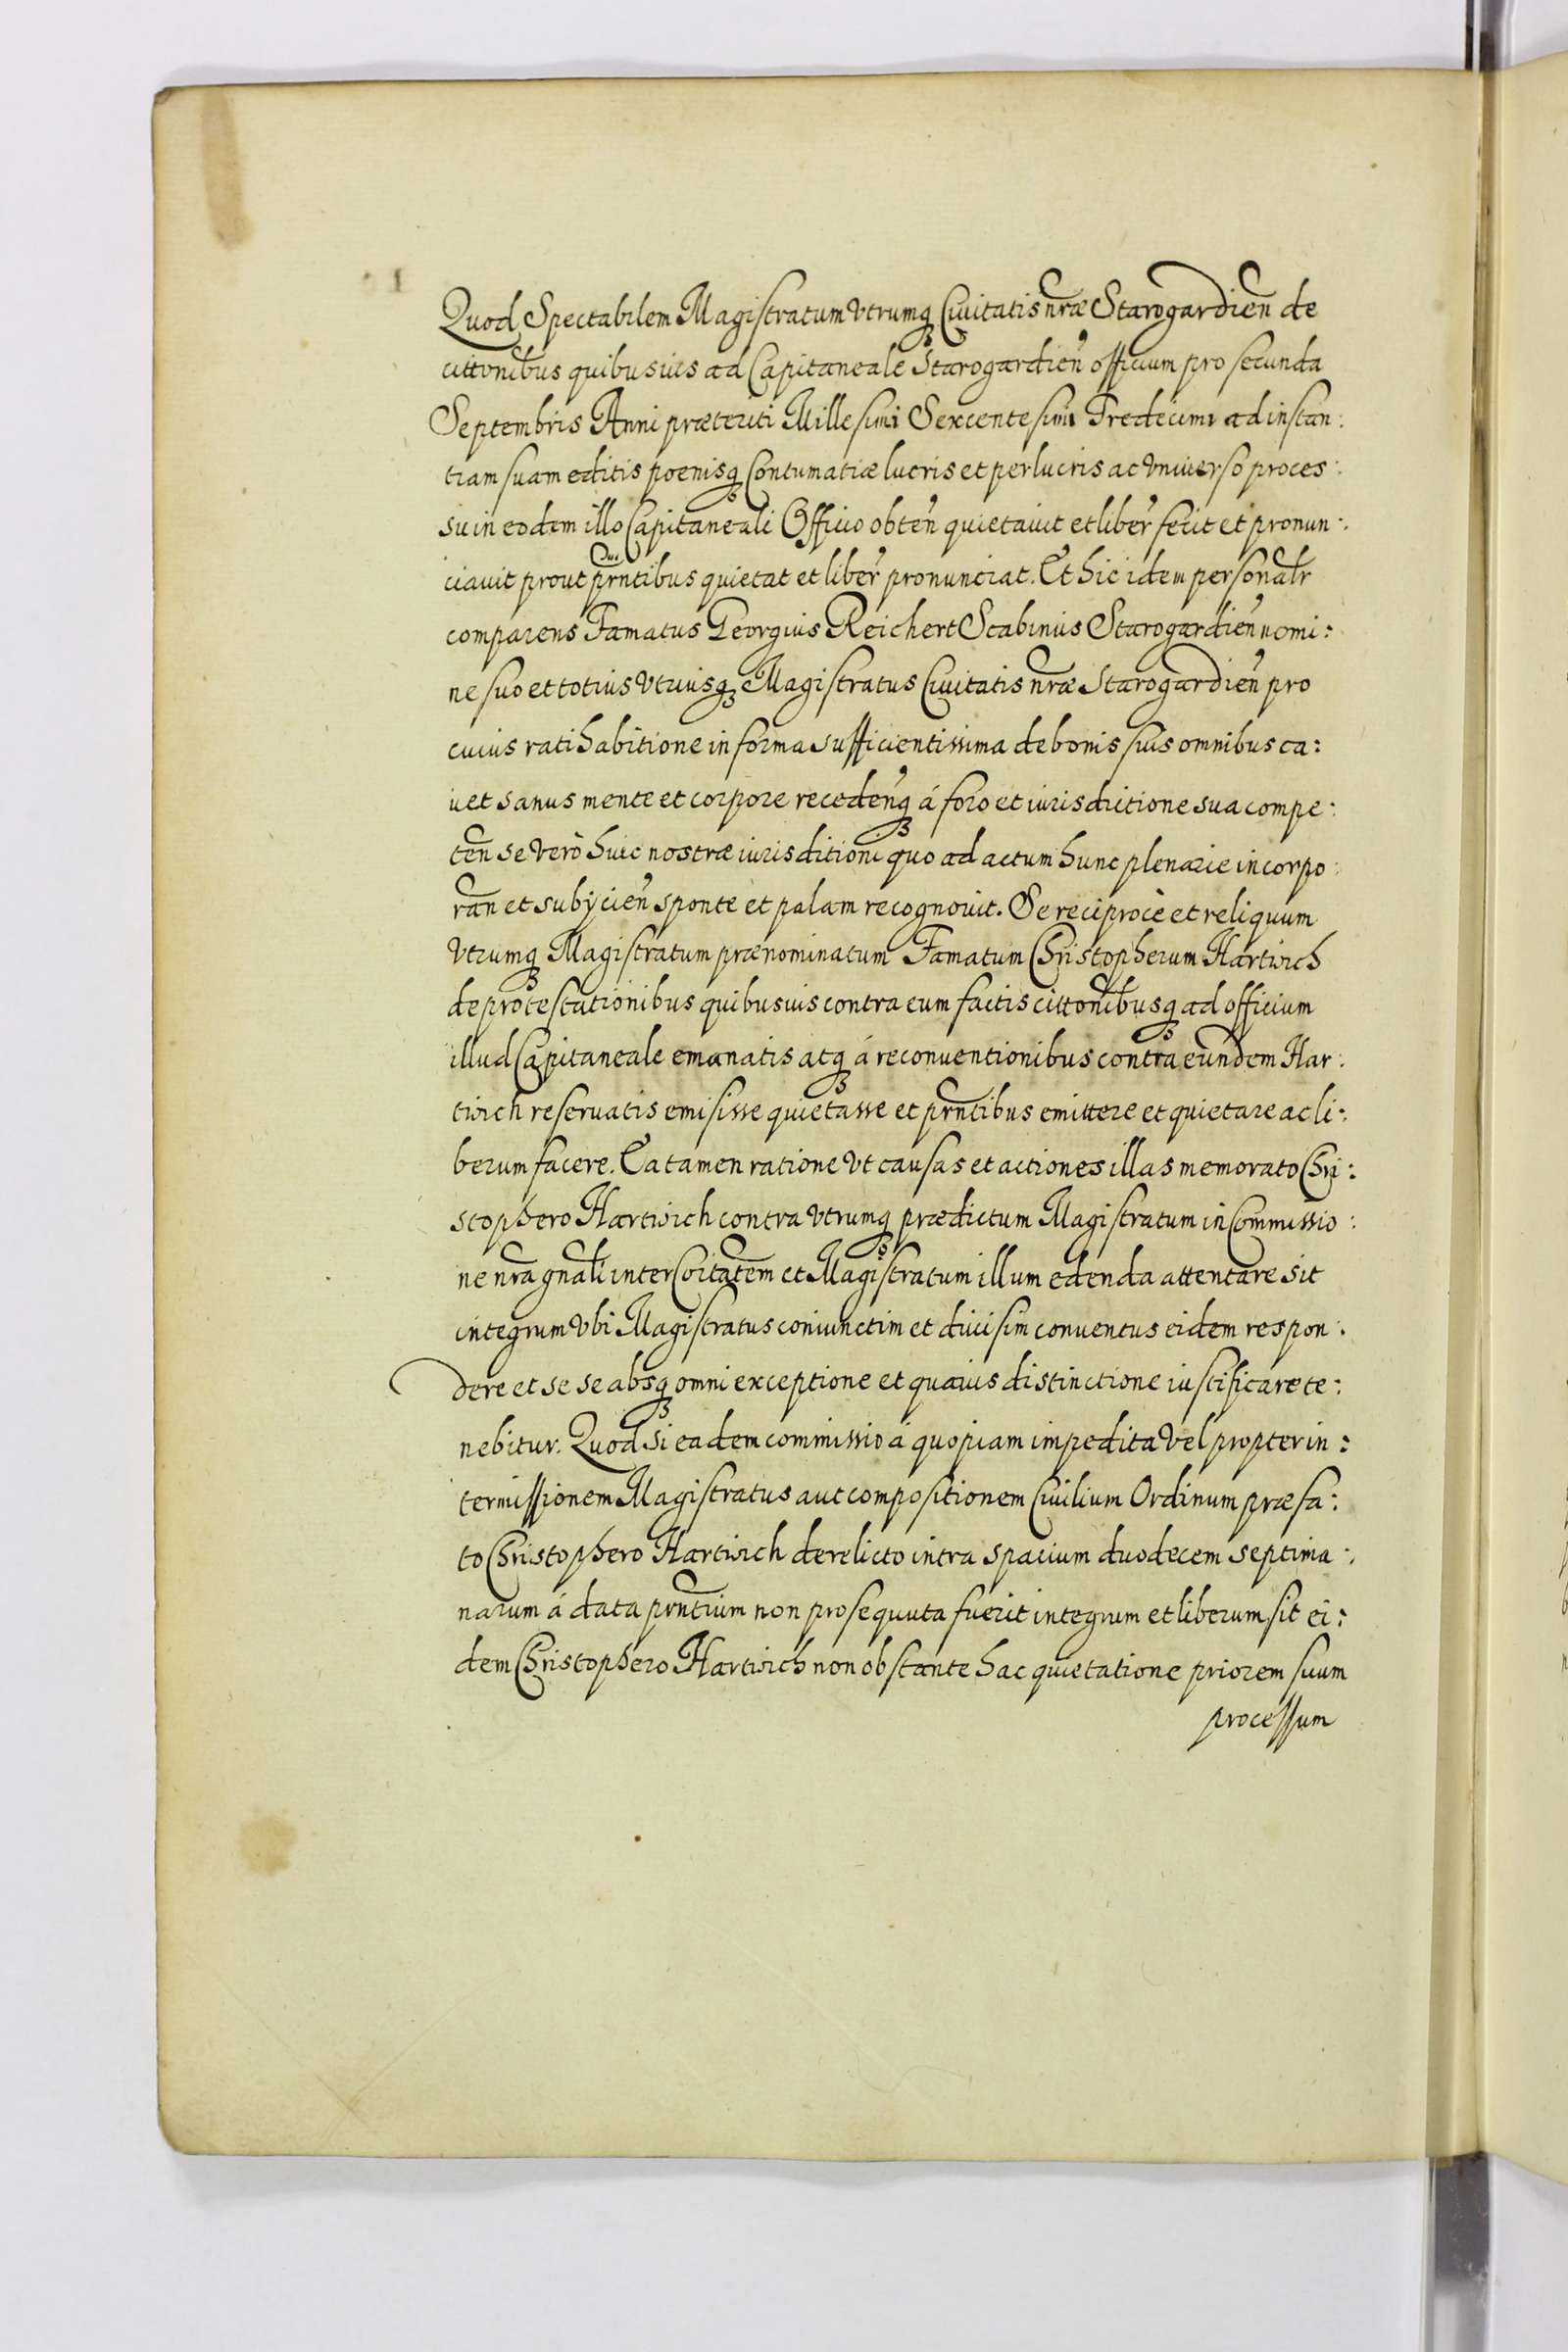 Quod Spectabilem Magistratum vtrumq́ꝫ Ciuitatis nr̃æ Starogardien̄ de
cittonibus quibusuis ad Capitaneale Starogardien̄ officium pro secunda
Septembris Anni præteriti Millesimi Sexcentesimi Tredecimi ad instan:
tiam suam editis poenisqꝫ Contumatiæ lucris et perlucris ac vniuerso proces:
su in eodem illo Capitaneali Officio obten̄ quietauit et liber̄ fecit et pronun:
ciauit prout pr̃ntibus quietat et liber̄ pronunciat. Et hic idem personalr̃
comparens Famatus Georgius Reichert Scabinus Starogardien̄ nomi:
ne suo et totius vtriusqꝫ Magistratus Ciuitatis nr̃æ Starogardien̄ pro
cuius ratihabitione in forma sufficientissima de bonis suis omnibus ca:
uet sanus mente et corpore recedenqꝫ á foro et iurisdictione sua compe:
ten̄ se verò huic nostræ iurisditioni quo ad actum hunc plenarie incorpo:
ran̄ et subÿcien̄ sponte et palam recognouit. Se reciprocè et reliquum
vtrumqꝫ Magistratum prænominatum Famatum Christopherum Hartwich
de protestationibus quibusuis contra eum factis cittonibusqꝫ ad officium
illud Capitaneale emanatis atqꝫ á reconuentionibus contra eundem Har:
twich reseruatis emisisse quietasse et pr̃ntibus emittere et quietare ac li:
berum facere. Ea tamen ratione vt causas et actiones illas memorato Chri:
stophero Hartwich contra vtrumqꝫ prædictum Magistratum in Commissio:
ne nr̃a gnãli inter Coitatem et Magistratum illum edenda attentare sit
integrum vbi Magistratus coniunctim et diuisim conuentus eidem respon:
dere et se se absqꝫ omni exceptione et quauis distinctione iustificare te:
nebitur. Quod si eadem commissio á quopiam impedita vel propter in:
termissionem Magistratus aut compositionem Ciuilium Ordinum præfa:
to Christophero Hartwich derelicto intra spacium duodecem septima:
narum á data pr̃ntium non prosequuta fuerit integrum et liberum sit ei:
dem Christophero Hartwich non obstante hac quietatione priorem suum
processum